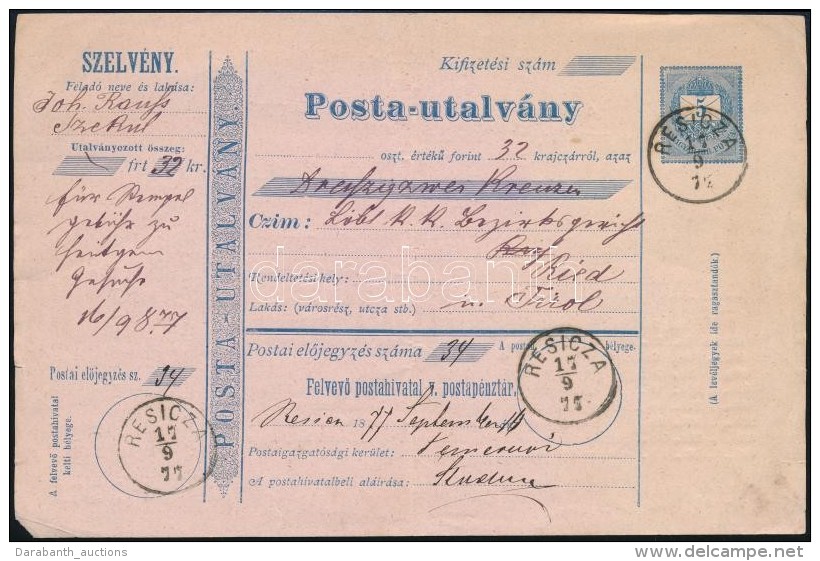 SZELVÉNY.
Feladó neve és lakása:
Joh. Rauss
Szekul
Utalványozott összeg:
frt 32 kr.
für Stempel
gebühr zu
Gesuche
16/9 877
Postai előjegyzés sz. 34
A felvevő postahivatal
kelti helyege.
RESICZA
17
9
77
POSTA-UTALVÁNY.
Kifizetési szám
Posta-utalvány
oszt. értékű forint 32 krajczárról, azaz
Dreiszigzwei Kreuzer
Czím: Löbl. K. K. Bezirksgericht
Rendeltetési hely: Ried
Lakás: (városrész, utcza stb.) in Tirol
Postai előjegyzés száma 34 A postai helyege.
RESICZA
17
9
77
Felvevő postahivatal v. postapénztár,
1877 September 16
Postaigazgatósági kerület: Temesvár
A postahivatalbeli aláírása:
RESICZA
17
9
77
(A levéljegyek ide ragasztandók.)
darabanth
Darabanth_auctions
delcampe.net